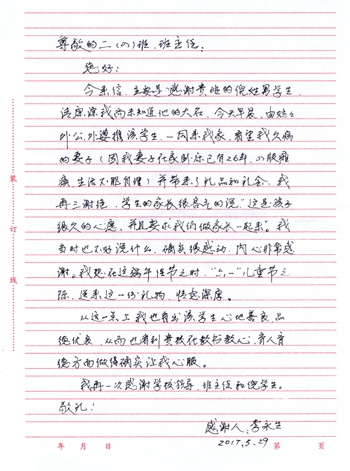 尊敬的二(四)班,班主任:
您好!
今来信,主要是感谢贵班的倪姓男学生,
请原谅我尚未知道他的大名。今天早晨,由妈
外公外婆携该学生,一同来我家,看望我久病
的妻子(因我妻子在家卧床已有26年,四肢瘫
痪,生活不能自理)并带来了礼品和礼金。我
再三谢绝,学生的家长很客气的说:"这是孩子
很久的心愿,并且要求我们做家长一起来"。我
当时也不好说什么,确实很感动,内心非常感
谢。我想在这端午佳节之时,"六一"儿童节之
际,送来这一份礼物,情意深厚。
从这一点上我也看出该学生心地善良品
德优良,从而也看到贵校在教书教人,育人育
德方面做得确实让我心服。
我再一次感谢学校领导,班主任和倪学生。
敬礼!
感谢人:李永生
2017.5.29
年 月 日 第 页
装
订
线